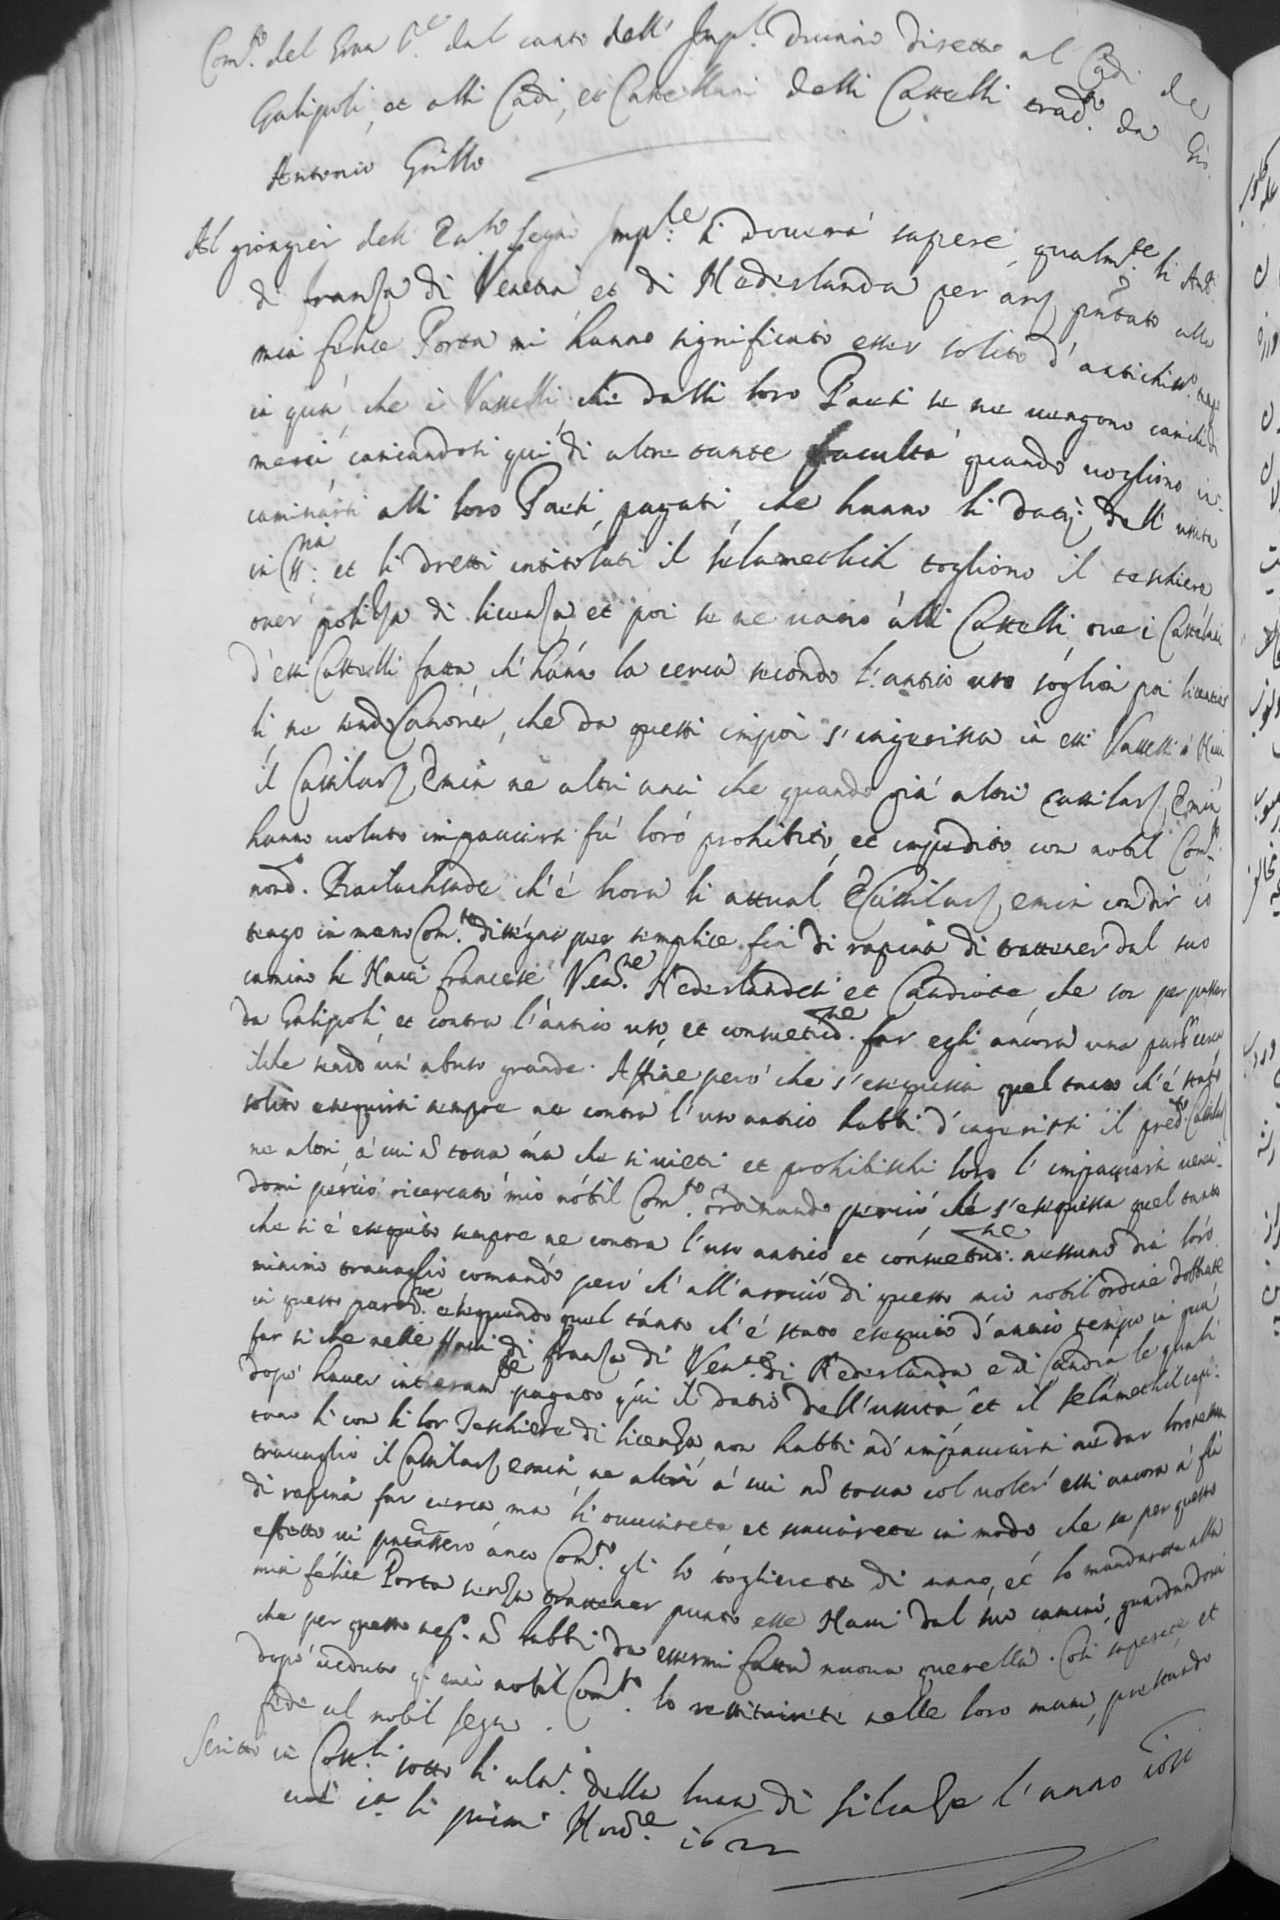 Com.to del Gran S.re dal canto dell' Imp.l Divano diretto al Cadi de
Galipoli, et alli Cadi, et Castellani delli Castelli trad.o da Gio.
Antonio Grillo
Al gionger dell Ecc.so segno Imp.le si doverà sapere qualm.te li Amb.
di franza di Venetia et di Nederlanda per arz pñtato alla
mia felice Porta mi hanno significato esser solito d'antichiss.o temp
in quà che i Vasselli che dalli loro Paesi se ne vengono carichi di
merci, cariandosi qui di altre tante facultà quando vogliono in-
caminarsi alli loro Paesi, pagati, che hanno li datij dell' ussita
in Cpl.: et li dretti intitolati il selametlich togliono il teschiere
over poliza di licenza, et poi se ne vano alli Castelli, ove i Castelani
d'essi Castelli fatta, ch' hano la cerca secondo l'antico uso soglion poi licentiar
li, ne send Canone, che da questi impoi s'ingerissa in essi Vasselli ò Navi
il Cassilarz Emin ne altri anci che quando già altri Cassilarz Emin
hanno voluto impacciarsi fù loró prohibito, et impedito con nobil Com.to
nond. ch' é hora li attual Cassilarz emin con dir io
tengo in mano Com.to disségna per semplice fin di rapina di trattener dal suo
camino le Navi francese Ven.ne Nederlandesi et Candiote, che son per passar
da Galipoli et contra l'antico uso, et consuetud.ne far egli ancora una cerca
il che send un' abuso grande. Affine però che s'esequissa quel tanto ch' é stato
solito esequirsi sempre ne contra l'uso antico habbi d'ingerissi il pred.o Cassilarz
ne altri à cui ñ tocca ma che si vieti et prohibischi loro l'impacciarsi
domi perciò ricercato mió nóbil Com.to ordinando perciò ché s'esequissa quel tanto
che si é esequito sempre ne contra l'uso antico et consuetud.ne nessuno dia lóró
minimo travaglio comando però ch' all'arrivó di questo mió nobil'órdine dobbiate
in questo esequendo quel tánto ch' é stato esequito d'antico tempo in quà
far si che nelle Navi di franza di Ven.a di Nederlanda e di Candia le quali
dopò haver interam.te pagato qui il datio dell'ussita et il selametlich
con li lor Teschiere di licenza non habbi ad' impacciarsi ne dar loro
travaglio il Cassilarz emin ne altri à cui ñ tocca col voler' essi ancora à fin
di rapina far cerca, ma li et in modo che se per questo
effetto vi pñtassero anco Com.to gli lo togliereté di mano, et lo mandarete alla
mia felice Porta senza trattener punto esse Navi dal suo camino, guardandovi
che per questo neg.o ñ habbi da essermi fatta nuova querella. Cosi saperete, et
dopò veduto q. mio nobil Com.to lo restituireté nelle loro mani, prestando
fede al nobil segno.
Scritto in Const.li sotto li ult.i della luna di silcaze l'anno 1031
cioè in li primi Nov.e 1622